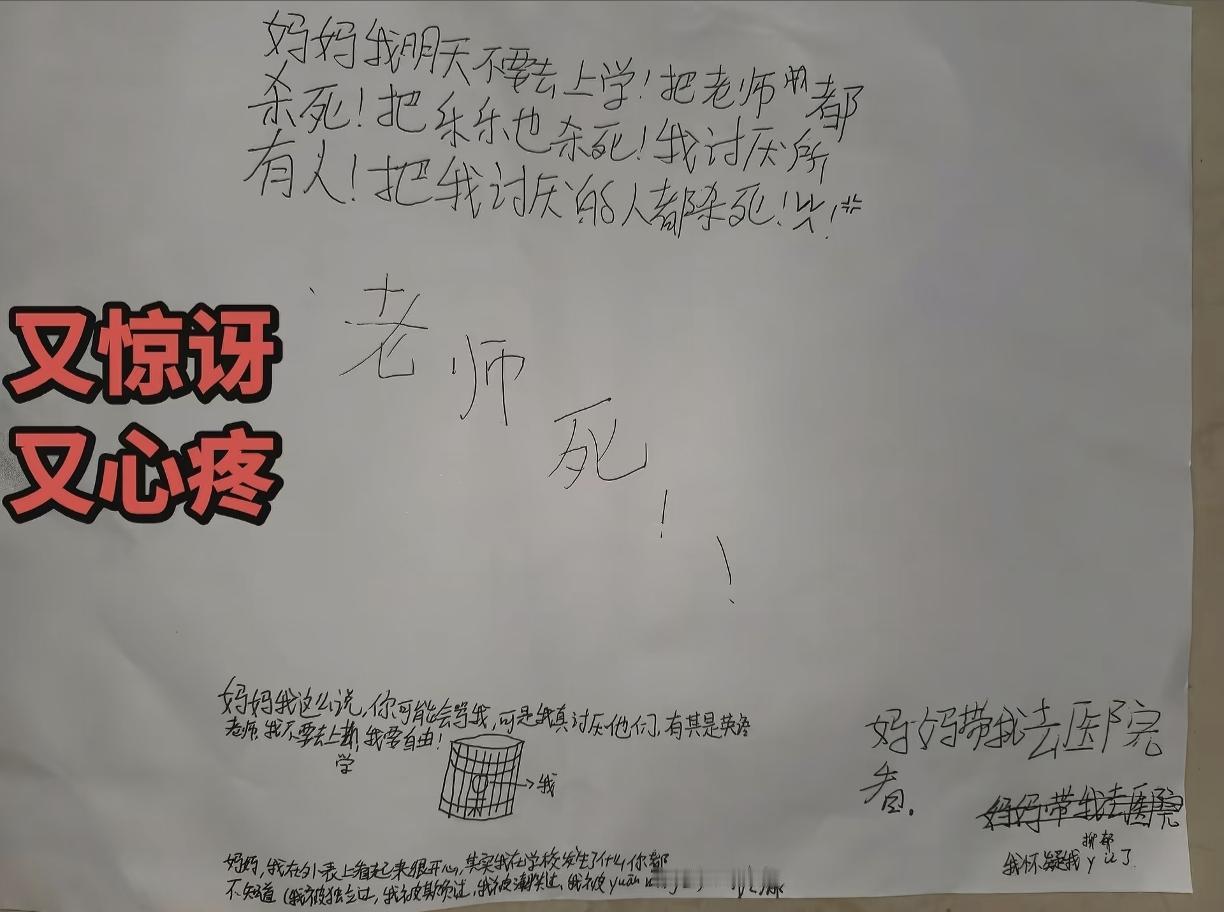 妈妈我明天不要去上学！把老师都
杀死！把乐乐也杀死！我讨厌所
有人！把我讨厌的人都杀死！
老师死！！
又惊讶
又心疼
妈妈我这么说，你可能会骂我，可是我真讨厌他们，有其是英语
老师，我不要去上学，我要自由！
我
妈妈带我去医院
看。
妈妈带我去医院
我怀疑我抑郁了
妈妈，我在外表上看起来很开心，其实我在学校发生了什么你都
不知道（我被独立过，我被欺负过，我被嘲笑过，我被yuān